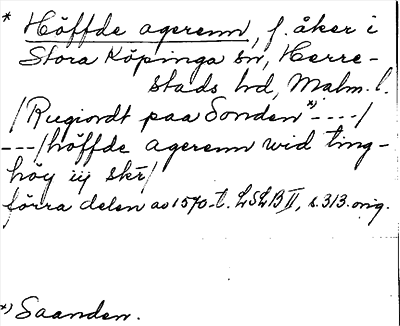 * Höffde agerenn, f. åker i
Stora Köpinga sn, Herre-
stads hd, Malm. l.
/Rugiordt paa Sonden *) ----/
---/höffde agerenn wid ting-
höy iij skr/
förra delen av 1570-t. LSLB II, s. 313. orig.
*) Saanden.